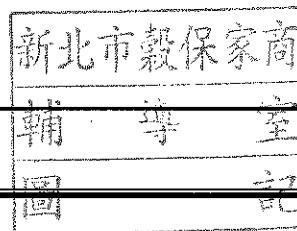 新北市穀保家商
輔導室
圖記